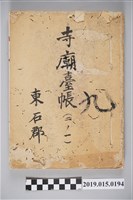 寺廟臺帳
九
東石郡
2019.015.0194